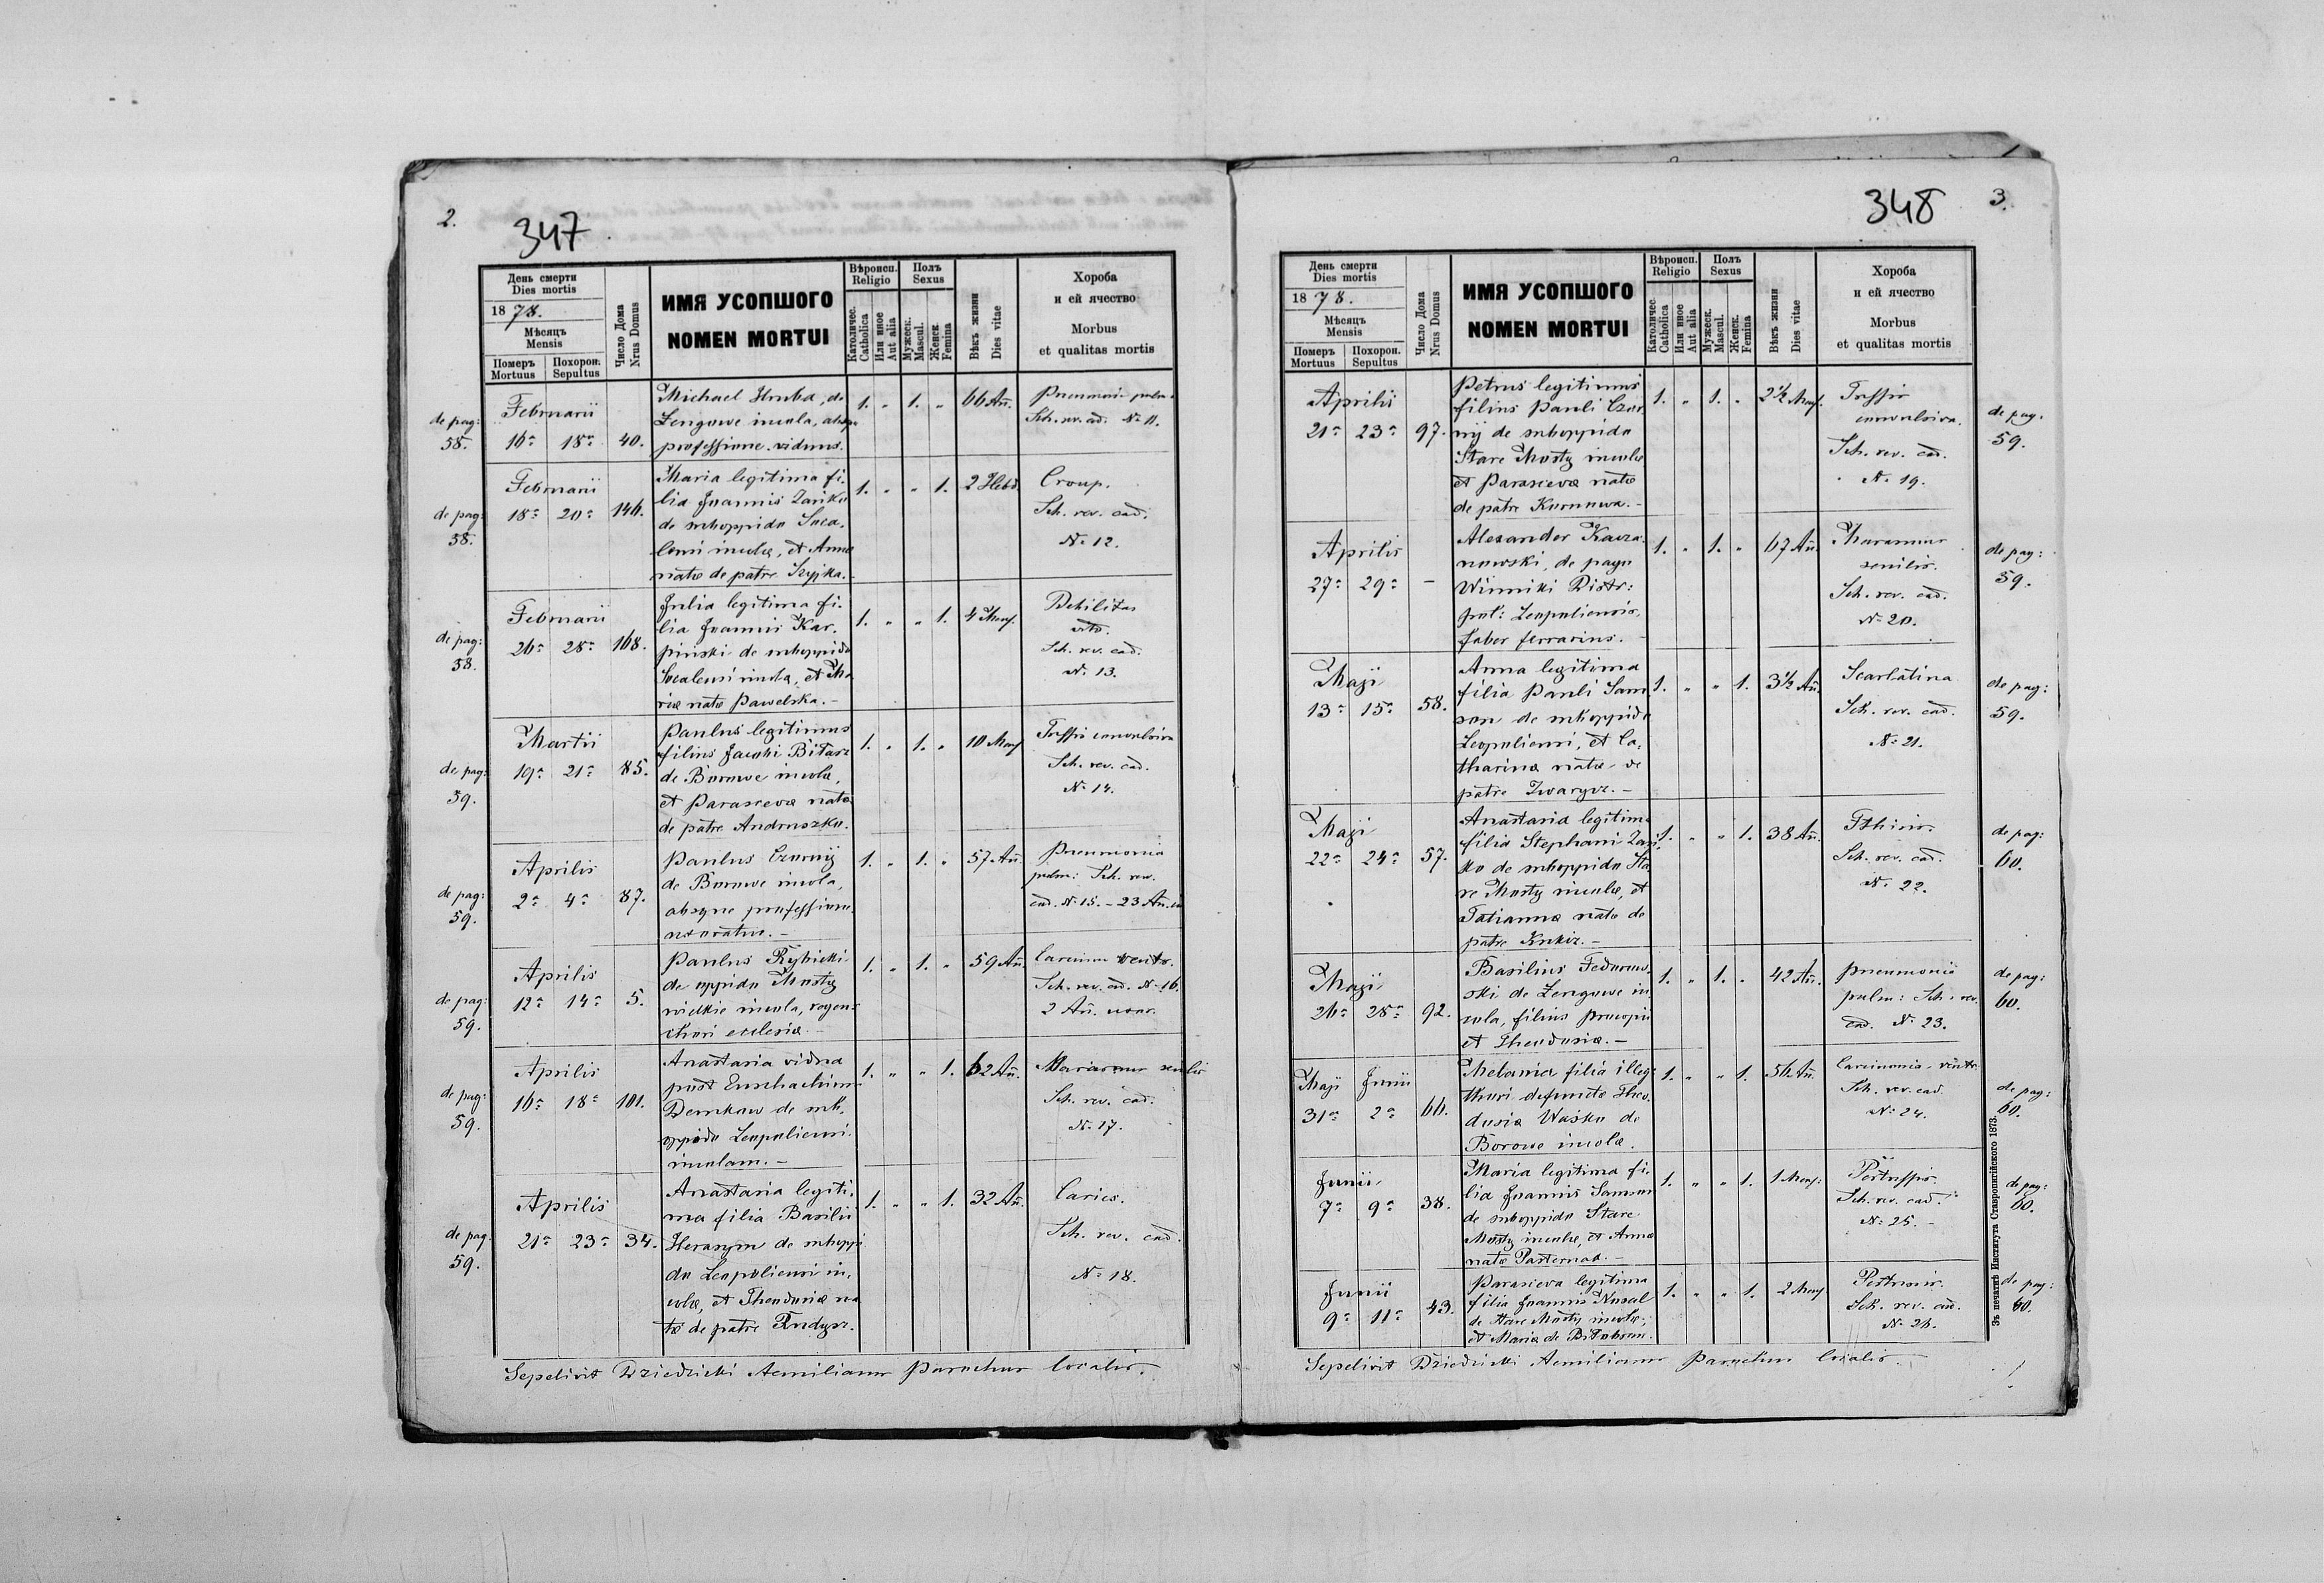 2.
347
День смерти
Dies mortis
1878.
Мѣсяцъ
Mensis
Померъ
Mortuus
Похорон.
Sepultus
Число Дома
Nrus Domus
ИМЯ УСОПШОГО
NOMEN MORTUI
Вѣроисп.
Religio
Католичес.
Catholica
Или иное
Aut alia
Полъ
Sexus
Мужеск.
Mascul.
Женск.
Femina
Вѣкъ жизни
Dies vitae
Хороба
и ей ячество
Morbus
et qualitas mortis
de pag:
58.
Februarii
16a 18a 40.
Michael Hruba, de
Zengowe incola, absque
professione viduus.
1. " 1. " 66 Añ.
Sch. rev. cad. No 11.
de pag:
58.
Februarii
18a 20a 146.
Maria legitima fi-
lia Joannis Zańko
de suboppido Soca-
lensi incolæ, et Annæ
natæ de patre Szyjka.
1. " " 1. 2 Hebd.
Croup.
Sch. rev. cad.
No 12.
de pag:
58.
Februarii
26a 28a 168.
Julia legitima fi-
lia Joannis Kar-
piński de suboppido
Socalensi incolæ, et Ma-
riæ natæ Pawelska. -
1. " " 1. 4 Mens.
Debilitas
Sch. rev. cad.
No 13.
de pag:
59.
Martii
19a 21a 85.
Paulus legitimus
filius Jacobi Bitarz
de Borowe incolæ,
et Parascevæ natæ
de patre Andruszko.
1. " 1. " 10 Mens
Tussis convulsiva
Sch. rev. cad.
No 14.
de pag:
59.
Aprilis
2a 4a 87.
Paulus Czornij
de Borowe incola,
absque professione
uxoratus. -
1. " 1. " 57 Añ.
Pneumonia
pulm: Sch. rev.
cad. No 15. - 23 Añ.
de pag:
59.
Aprilis
12a 14a 5.
Paulus Rybicki
de oppido Mosty
wielkie incola, regens
chori ecclesiæ. -
1. " 1. " 59 Añ.
Carcinom ventr.
Sch. rev. cad. No 16.
2 Añ. uxor.
de pag:
59.
Aprilis
16a 18a 101.
Anastasia vidua
post Eustachium
Demkow de sub-
oppido Leopoliensi
incolam. -
1. " " 1. 62 Añ.
Marasmus senilis
Sch. rev. cad.
No 17.
de pag
59.
Aprilis
21a 23a 34.
Anastasia legiti-
ma filia Basilii
Herasym de suboppi-
do Leopoliensi in-
colæ, et Theodosiæ na-
tæ de patre Rudysz.
1. " " 1. 32 Añ.
Caries.
Sch. rev. cad.
No 18.
Sepelivit Dziedzicki Aemilianus Parochus localis.
348
3.
День смерти
Dies mortis
1878.
Мѣсяцъ
Mensis
Померъ
Mortuus
Похорон.
Sepultus
Число Дома
Nrus Domus
ИМЯ УСОПШОГО
NOMEN MORTUI
Вѣроисп.
Religio
Католичес.
Catholica
Или иное
Aut alia
Полъ
Sexus
Мужеск.
Mascul.
Женск.
Femina
Вѣкъ жизни
Dies vitae
Хороба
и ей ячество
Morbus
et qualitas mortis
Aprilis
21a 23a 97.
Petrus legitimus
filius Pauli Czor-
nij de suboppido
Stare Mosty incolæ
et Parascevæ natæ
de patre Kurnowa. -
1. " 1. " 2½ Mens.
Tussis
convulsiva.
Sch. rev. cad.
No 19.
de pag.
59.
Aprilis
27a 29a -
Alexander Kacza-
nowski, de pago
Winniki Distr:
pol: Leopoliensis,
faber ferrarius. -
1. " 1. " 67 Añ.
Marasmus
senilis.
Sch. rev. cad.
No 20.
de pag:
59.
Maji
13a 15a 58.
Anna legitima
filia Pauli Sam-
son de suboppido
Leopoliensi, et Ca-
tharinæ natæ de
patre Zwarycz. -
1. " " 1. 3½ Añ.
Scarlatina
Sch. rev. cad.
No 21.
de pag:
59.
Maji
22a 24a 57.
Anastasia legitima
filia Stephani Zań-
ko de suboppido Sta-
re Mosty incolæ, et
Tatiannæ natæ de
patre Kukiz. -
1. " " 1. 38 Añ.
Sch. rev. cad.
No 22.
de pag:
60.
Maji
26a 28a 92.
Basilius Fedorow-
ski de Zengowe in-
cola, filius Procopii
et Theodosiæ. -
1. " 1. " 42 Añ.
Pneumonia
pulm: Sch. rev.
cad. No 23.
de pag:
60.
Maji Junii
31a 2a 66.
Melania filia illeg.
thori defunctæ Theo-
dosiæ Waśko de
Borowe incolæ.
1. " " 1. 56 Añ.
Carcinomia ventr.
Sch. rev. cad.
No 24.
de pag:
60.
Junii
7a 9a 38.
Maria legitima fi-
lia Joannis Samson
de suboppido Stare
Mosty incolæ, et Annæ
natæ Pasternak. -
1. " " 1. 1 Mens.
Pertussis.
Sch. rev. cad.
No 25. -
de pag:
60.
Junii
9a 11a 43.
Parasceva legitima
filia Joannis Kuscal
de Stare Mosty incolæ,
et Mariæ de
1. " " 1. 2 Mens
Sch. rev. cad.
No 26.
de pag:
60.
Зъ печатнѣ Института Ставропигійского 1873.
Sepelivit Dziedzicki Aemilianus Parochus localis.